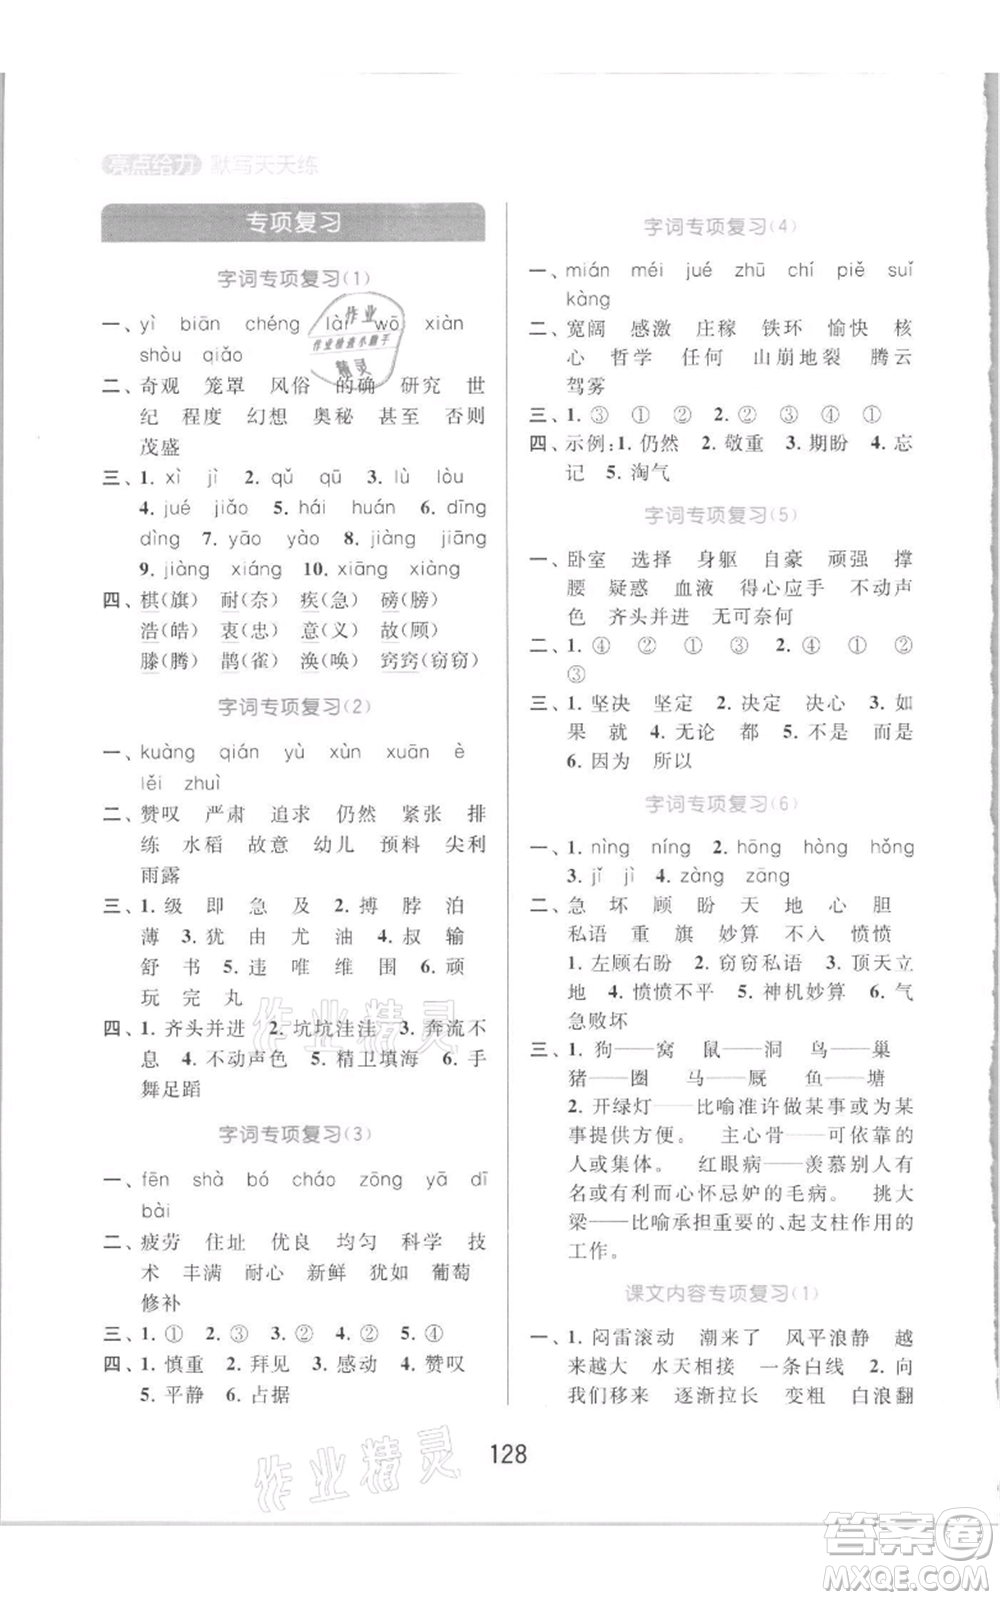 亮点给力 默写天天练
专项复习
字词专项复习(1)
一、yì biān chéng lài wō xiàn
shòu qiǎo
二、奇观 笼罩 风俗 的确 研究 世
纪 程度 幻想 奥秘 甚至 否则
茂盛
三、1. xì jì 2. qǔ qū 3. lù lòu
4. jué jiǎo 5. hái huán 6. dīng
dìng 7. yāo yào 8. jiǎng jiāng
9. jiàng xiáng 10. xiāng jiāng
四、棋(旗) 耐(奈) 疾(急) 磅(膀)
浩(皓) 衷(忠) 意(义) 故(顾)
滕(腾) 鹊(雀) 涣(唤) 窍窍(窃窃)
字词专项复习(2)
一、kuàng qián yù xùn xuān è
lěi zhuì
二、赞叹 严肃 追求 仍然 紧张 排
练 水稻 故意 幼儿 预料 尖利
雨露
三、1. 级 即 急 及 2. 搏 脖 泊
薄 3. 犹 由 尤 油 4. 叔 输
舒 书 5. 违 唯 维 围 6. 顽
玩 完 丸
四、1. 齐头并进 2. 坑坑洼洼 3. 奔流不
息 4. 不动声色 5. 精卫填海 6. 手
舞足蹈
字词专项复习(3)
一、fēn shà bó cháo zōng yā dī
bài
二、疲劳 住址 优良 均匀 科学 技
术 丰满 耐心 新鲜 犹如 葡萄
修补
三、1. ① 2. ③ 3. ② 4. ② 5. ④
四、1. 慎重 2. 拜见 3. 感动 4. 赞叹
5. 平静 6. 占据
字词专项复习(4)
一、mián méi jué zhū chí piě suǐ
kàng
二、宽阔 感激 庄稼 铁环 愉快 核
心 哲学 任何 山崩地裂 腾云
驾雾
三、1. ③ ① ② 2. ② ③ ④ ①
四、示例:1. 仍然 2. 敬重 3. 期盼 4. 忘
记 5. 淘气
字词专项复习(5)
一、卧室 选择 身躯 自豪 顽强 撑
腰 疑惑 血液 得心应手 不动声
色 齐头并进 无可奈何
二、1. ④ ② ① ③ 2. ① ④ ②
③
三、1. 坚决 坚定 2. 决定 决心 3. 如
果 就 4. 无论 都 5. 不是 而是
6. 因为 所以
字词专项复习(6)
一、1. nìng níng 2. hōng hòng hǒng
3. jǐ jì 4. zàng zāng
二、急 坏 顾 盼 天 地 心 胆
私语 重 旗 妙算 不入 愤愤
1. 左顾右盼 2. 窃窃私语 3. 顶天立
地 4. 愤愤不平 5. 神机妙算 6. 气
急败坏
三、1. 狗——窝 鼠——洞 鸟——巢
猪——圈 马——厩 鱼——塘
2. 开绿灯——比喻准许做某事或为某
事提供方便。 主心骨——可依靠的
人或集体。 红眼病——羡慕别人有
名或有利而心怀忌妒的毛病。 挑大
梁——比喻承担重要的、起支柱作用的
工作。
课文内容专项复习(1)
一、1. 闷雷滚动 潮来了 风平浪静 越
来越大 水天相接 一条白线 2. 向
我们移来 逐渐拉长 变粗 白浪翻
128
作业
作业检查小助手
精灵
作业精灵
作业精灵
答案卷
MXQE.COM